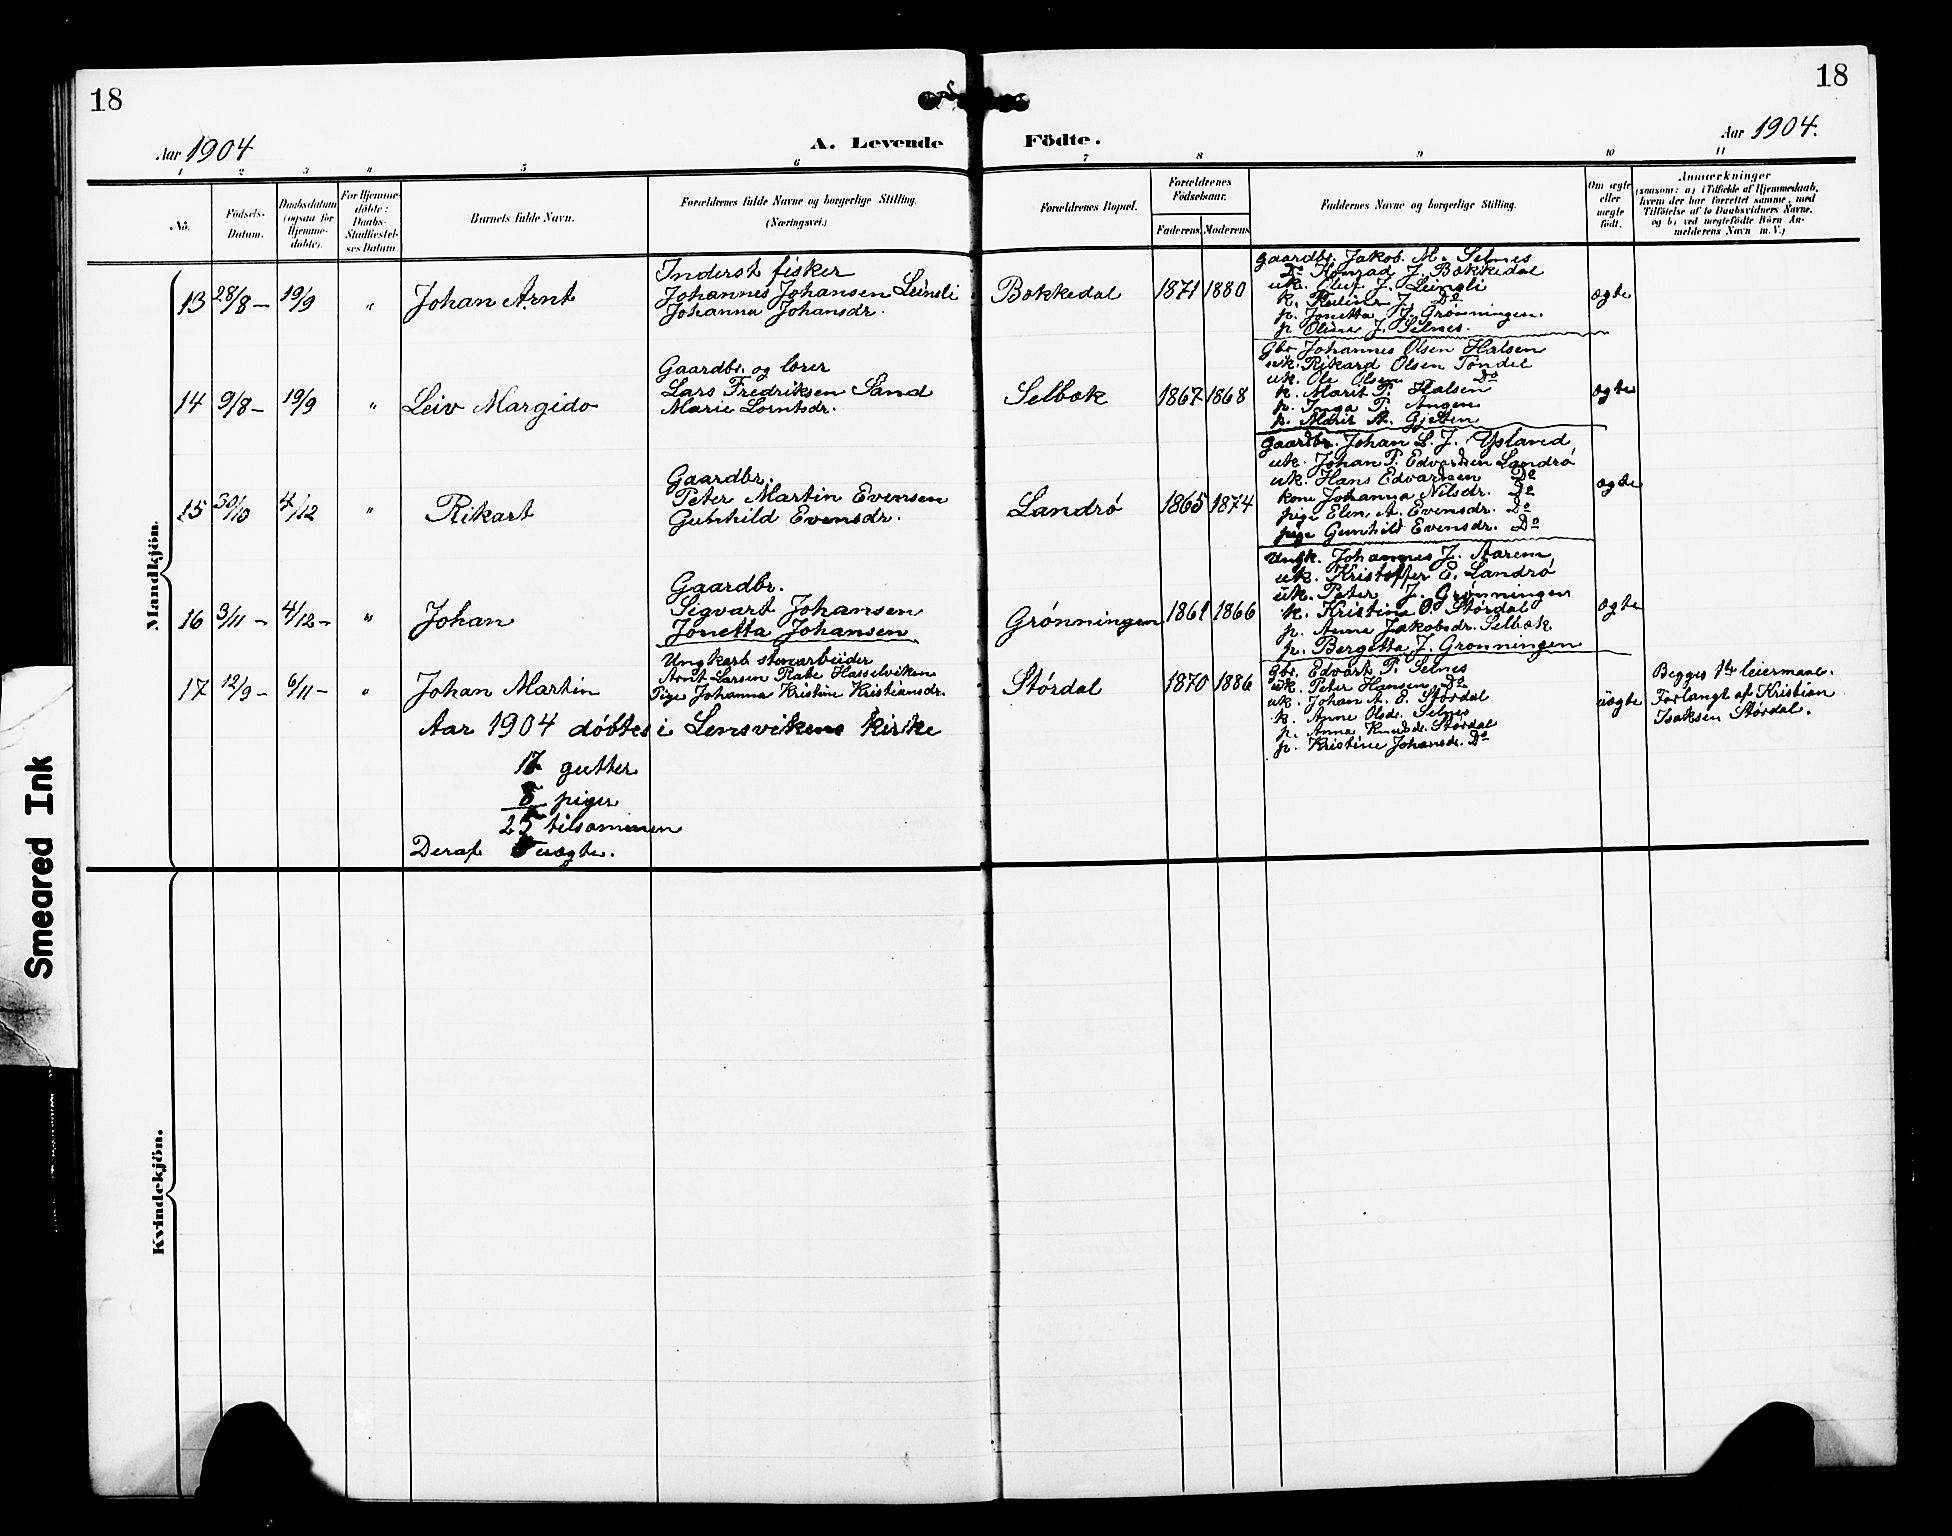 18
18
Aar 1904
A. Levende Födte.
Aar 1904.
1 2 3 4 5 6 7 8 9 10 11
No.
Födsels-Datum.
Daabsdatum (ogsaa for Hjemmedøbte).
For Hjemmedöbte: Daabs-Stadfæstelses Datum.
Barnets fulde Navn.
Forældrenes fulde Navne og borgerlige Stilling. (Næringsvei.)
Forældrenes Bopæl.
Forældrenes Födselsaar.
Faderens Moderens
Faddernes Navne og borgerlige Stilling.
Om ægte eller uægte født.
Anmærkninger
(saasom: a) i Tilfælde af Hjemmedaab, hvem der har forrettet samme, med Tilföielse af to Daabsvidners Navne, og b) ved uægtefödte Börn Anmelderens Navn m. V.)
Mandkjön.
13 28/8 – 19/9 " Johan Arnt
Inderst fisker
Johannes Johansen Leinsli
Johanna Johansdr.
Bakkedal 1871 1880
Gaardbr. Jakob M. Selnes
Do Konrad J. Bakkedal
uk. Oluf J. Leinsli
k. Paulina J. Do
p. Jonetta J. Grønningen
p. Olina J. Selnes.
ægte
14 9/8 – 19/9 " Leiv Margido
Gaardbr. og lærer
Lars Fredriksen Sand
Marie Lorntsdr.
Selbæk 1867 1868
Gbr Johannes Olsen Halsen
uk. Rikard Olsen Tøndel
uk. Ole Olsen Do
k. Marit P. Halsen
p. Inga P. Angen
p. Marit A. Gjetten
ægte
15 30/10 4/12 " Rikart
Gaardbr.
Peter Martin Evensen
Gunhild Evensdr.
Landrø 1865 1874
Gaardbr. Johan L. J. Ysland
uk. Johan P. Edvardsen Landrø
uk. Hans Edvardsen Do
kone Johanna Nilsdr. Do
pige Elen A. Evensdr. Do
pige Gunhild Evensdr. Do
ægte
16 3/11 – 4/12 – " Johan
Gaardbr.
Sigvart Johansen
Jonetta Johansen
Grønningen 1861 1866
Ungk. Johannes J. Aarem
uk. Kristoffer E. Landrø
uk. Peter J. Grønningen
k. Kristina O. Størdal
p. Anne Jakobsdr. Selbæk
p. Bergitta J. Grønningen
ægte
17 12/9 – 6/11 – " Johan Martin
Ungkarl stenarbeider
Arnt Larsen Rabe Hasselviken
Pige Johanna Kristine Kristiansdr.
Størdal 1870 1886
Gbr. Edvart P. Selnes
uk. Peter Hansen Do
uk. Johan A. E. Størdal
k. Anne Olsdr. Selnes
p. Anna Knudsdr. Størdal
p. Kristine Johansdr. Do
uægte
Begges 1ste leiermaal.
Forlangt af Kristian
Isaksen Størdal.
Aar 1904 døbtes i Lensvikens kirke
17 gutter
8 piger
25 tilsammen
Deraf 5 uægte.
Kvindekjön.
Smeared Ink